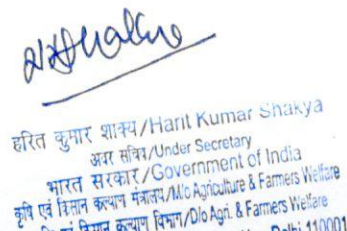 हरित कुमार शाक्य/Harit Kumar Shakya
अवर सचिव/Under Secretary
भारत सरकार/Government of India
कृषि एवं किसान कल्याण मंत्रालय/M/o Agriculture & Farmers Welfare
एवं किसान कल्याण विभाग/D/o Agri. & Farmers Welfare
Delhi 110001